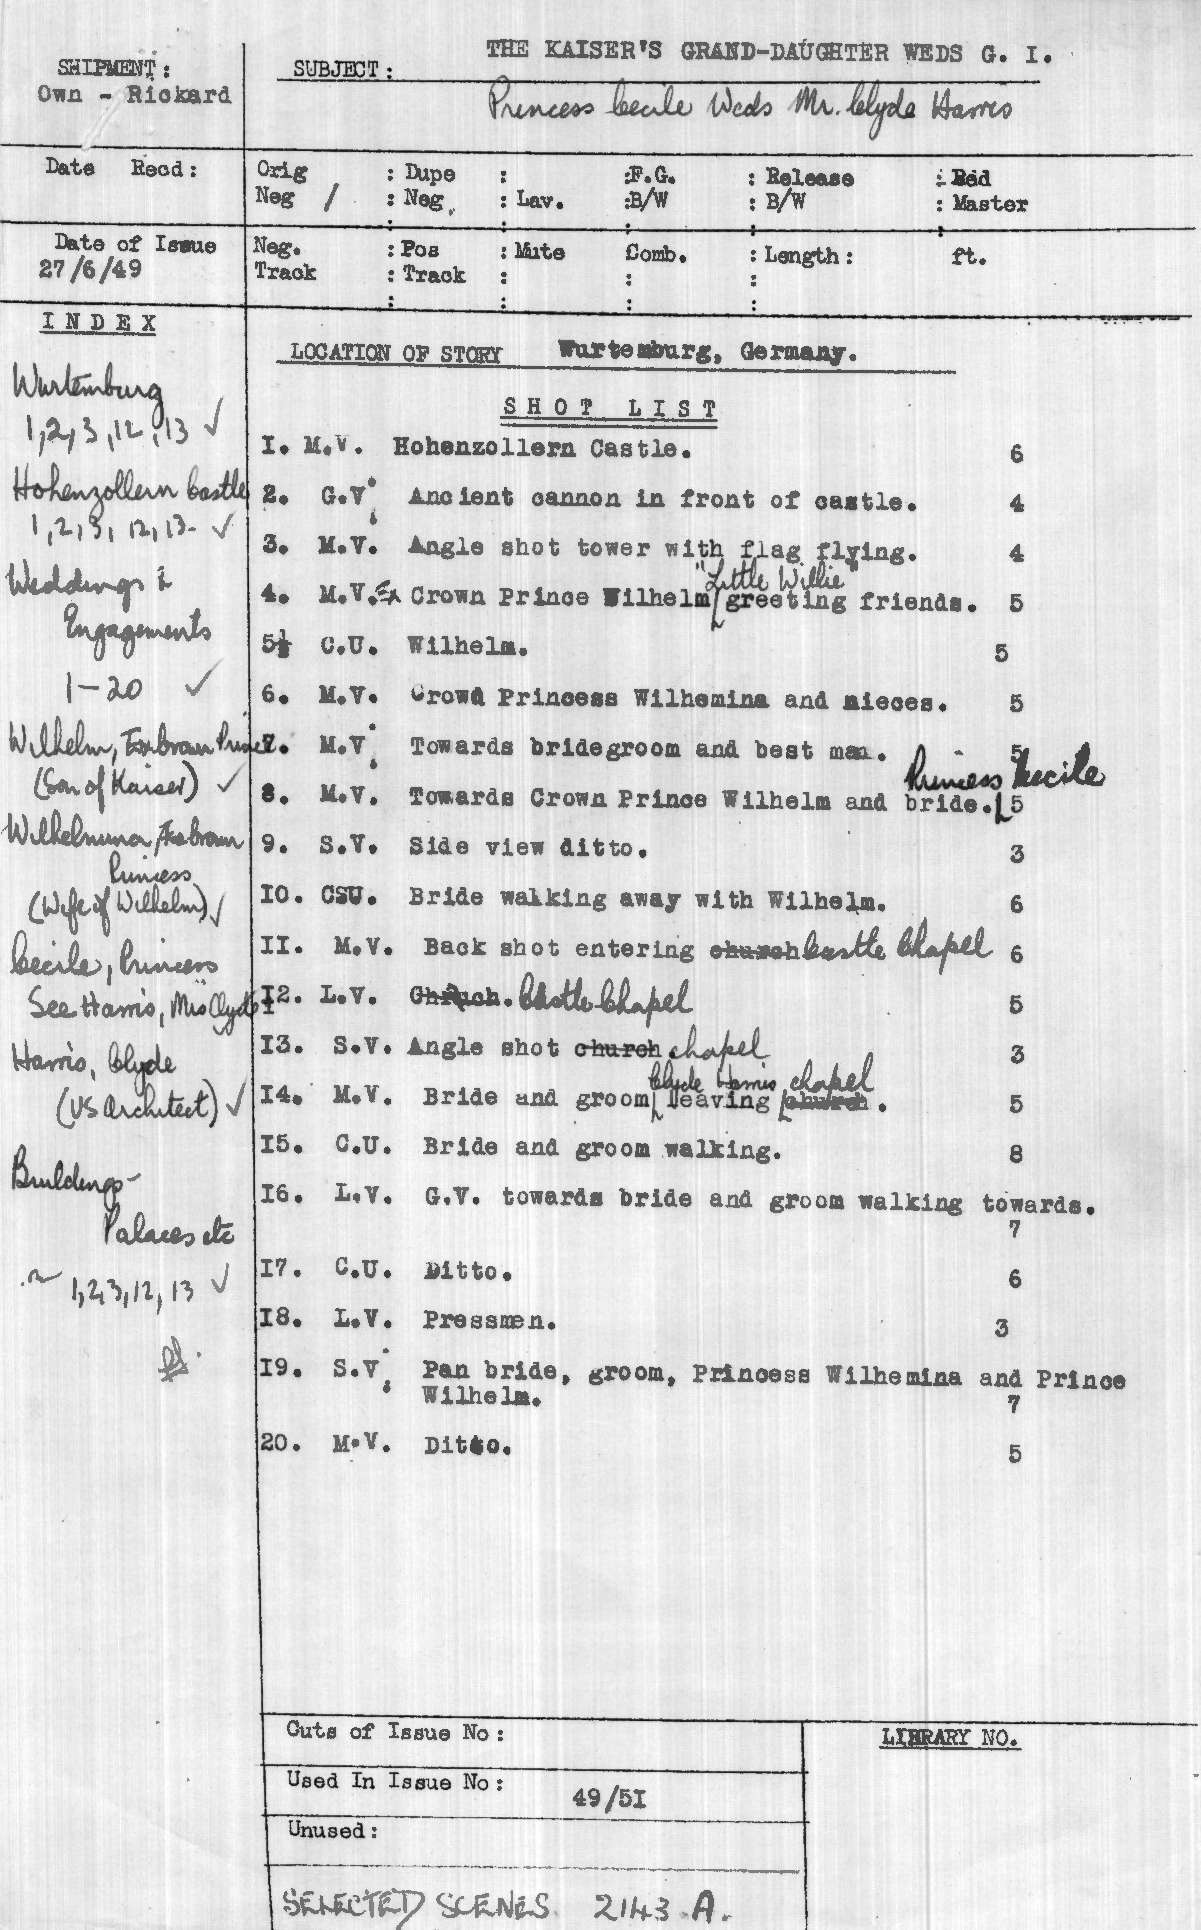 THE KAISER'S GRAND-DAUGHTER WEDS G. I.
SHIPMENT:
Own - Rickard
SUBJECT:
Princess Cecile Weds Mr. Clyde Harris
Date Recd:
Orig : Dupe : :F.G. : Release : Red
Neg / : Neg. : Lav. :B/W : B/W : Master
Date of Issue
27/6/49
Neg. : Pos : Mute Comb. : Length: ft.
Track : Track : : :
I N D E X
Wurtemburg
1,2,3,12,13 ✓
Hohenzollern Castle
1,2,3, 12,13- ✓
Weddings &
Engagements
1-20 ✓
Wilhelm, Ex Crown Prince
(Son of Kaiser) ✓
Wilhelmina, Ex Crown
Princess
(Wife of Wilhelm) ✓
Cecile, Princess
See Harris, Mrs Clyde
Harris, Clyde
(US Architect) ✓
Buildings-
Palaces etc
1,2,3,12,13 ✓
LOCATION OF STORY Wurtemburg, Germany.
S H O T L I S T
I. M.V. Hohenzollern Castle. 6
2. G.V. Ancient cannon in front of castle. 4
3. M.V. Angle shot tower with flag flying. 4
"Little Willie"
4. M.V. Ex Crown Prince Wilhelm greeting friends. 5
5. C.U. Wilhelm. 5
6. M.V. Crown Princess Wilhemina and nieces. 5
7. M.V. Towards bridegroom and best man. 5
Princess Cecile
8. M.V. Towards Crown Prince Wilhelm and bride. 5
9. S.V. Side view ditto. 3
IO. CSU. Bride walking away with Wilhelm. 6
II. M.V. Back shot entering church Castle Chapel 6
I2. L.V. Church. Castle Chapel 5
I3. S.V. Angle shot church chapel 3
Clyde Harris chapel
I4. M.V. Bride and groom leaving church. 5
I5. C.U. Bride and groom walking. 8
I6. L.V. G.V. towards bride and groom walking towards.
7
I7. C.U. Ditto. 6
I8. L.V. Pressmen. 3
I9. S.V. Pan bride, groom, Princess Wilhemina and Prince
Wilhelm. 7
20. M.V. Ditto. 5
Cuts of Issue No:
LIBRARY NO.
Used In Issue No: 49/5I
Unused:
SELECTED SCENES 2143 A.